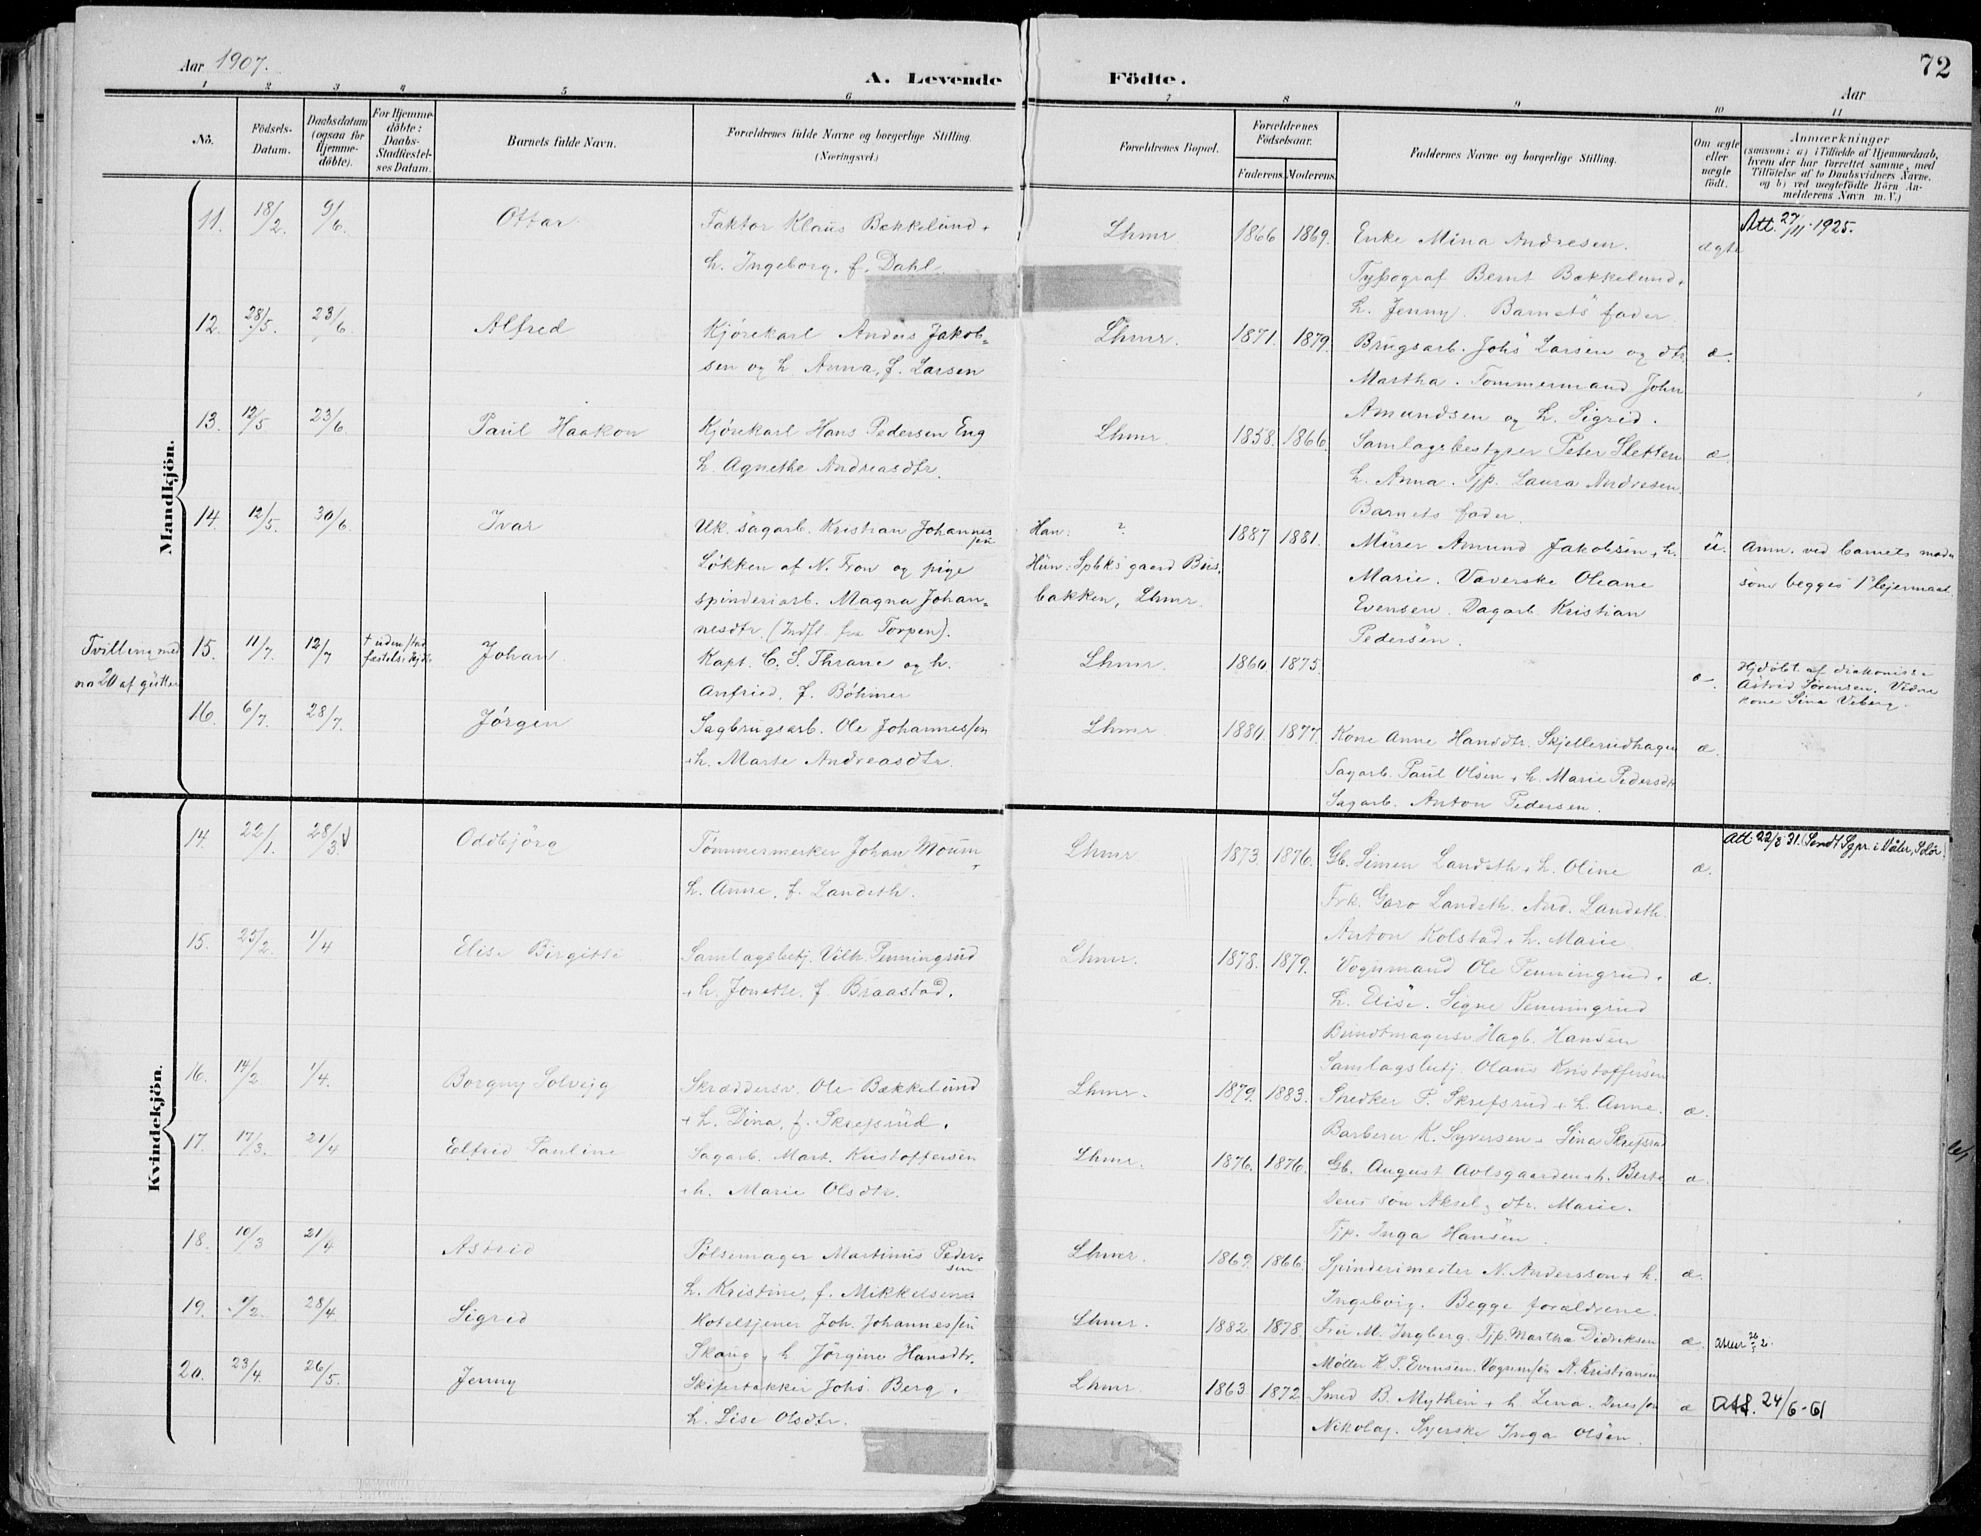 Aar 1907.
A. Levende Födte.
72
Aar
1 2 3 4 5 6 7 8 9 10 11
No.
Födsels-Datum.
Daabsdatum (ogsaa for Hjemmedöbte).
For Hjemmedöbte: Daabs-Stadfæstelses Datum.
Barnets fulde Navn.
Forældrenes fulde Navne og borgerlige Stilling. (Næringsvei.)
Forældrenes Bopæl.
Forældrenes Födselsaar.
Faderens. Moderens.
Faddernes Navne og borgerlige Stilling.
Om ægte eller uægte födt.
Anmærkninger
(saasom: a) i Tilfælde af Hjemmedaab,
hvem der har forrettet samme, med
Tilföielse af to Daabsvidners Navne.
og b) ved uægtefödte Börn An-
melderens Navn m.V.)
Mandkjön.
11. 18/2. 9/6. Ottar Faktor Klaus Bækkelund + Lhmr 1866 1869. Enke Mina Andresen. ægte Att. 27/11 1925.
h. Ingeborg, f. Dahl. Typograf Bernt Bækkelund +
h. Jenny. Barnets fader.
12. 28/5. 23/6. Alfred Kjørekarl Anders Jakob= Lhmr. 1871. 1879. Brugsarb. Johs Larsen og dtr. æ.
sen og h Anna, f. Larsen Martha. Tømmermand John
Amundsen og h. Sigrid.
13. 12/5 23/6. Paul Haakon Kjørekarl Hans Pedersen Eng Lhmr. 1858. 1866. Samlagsbestyrer Peter Sletten æ.
h. Agnethe Andreasdtr. h. Anna. Tjp. Laura Andresen.
Barnets fader.
14. 12/5. 30/6. Ivar Uk. sagarb. Kristian Johannessen Han: ? 1887 1881. Murer Amund Jakobsen + h. u. Anm. ved barnets moder
Løkken af N. Fron og pige Hun: Spbks gaard Bus. Marie. Væverske Oleane som begges 1ste lejermaal
spinderiarb. Magna Johan= bakken, Lhmr. Evensen. Dagarb. Kristian
nesdtr. (Indfl. fra Torpen). Pedersen.
Tvilling med
no 20 af gutter
15. 11/7. 12/7 † uden stadfæstelse Johan. Kapt. C. S. Thrane og h. Lhmr. 1860 1875. æ. Hjdøbt af diakonisse
Anfried, f. Bøhmer Astrid Sørensen. Vidne
kone Lina Viberg.
16. 6/7. 28/7. Jørgen Sagbrugsarb. Ole Johannessen Lhmr. 1880. 1877. Kone Anne Hansdtr. Skjellerudhagen æ.
+h. Marte Andreasdtr. Sagarb. Paul Olsen + h. Marie Pedersdtr
Sagarb. Anton Pedersen.
Kvindekjön.
14. 22/1. 28/3. Oddbjörg Tømmermerker Johan Moum + Lhmr. 1873. 1876. Gb. Simen Landeth + h. Oline æ. Att. 22/8 31. Sendt Sgpr. i Våler, Solør.
h. Anne, f. Landeth. Frk. Garo Landeth. Nord. Landeth.
Anton Kolstad + h. Marie
15. 25/2. 1/4 Elise Birgitte Samlagsbetj. Vilh. Penningrud Lhmr. 1878. 1879. Vognmand Ole Penningrud + æ.
+ h. Jonette, f. Braastad. h. Elise. Signe Penningrud
Bundtmagersv. Hagb. Hansen
Samlagsbetj. Olaus Kristoffersen
16. 14/2 1/4. Borgny Solveig Skræddersv. Ole Bækkelund Lhmr. 1879. 1883. Snedker P. Skrefsrud + h. Anne. æ.
+ h. Dina, f. Skrefsrud. Barberer K. Syversen + Lina Skrefsrud
17. 17/3. 21/4 Elfrid Pauline Sagarb. Mart. Kristoffersen Lhmr. 1876. 1876. Gb. August Avlsgaarden + h. Berte æ.
+ h. Marie Olsdtr. Deres søn Aksel, dtr. Marie.
Tjp. Inga Hansen.
18. 10/3 21/4 Astrid Pølsemager Martinius Pedersen Lhmr. 1869. 1866. Spinderimester N. Andersson + h. æ.
h. Kristine, f. Mikkelsen Ingeborg. Begge forældrene.
19. 5/2. 28/4. Sigrid Hoteltjener Joh. Johannessen Lhmr. 1882. 1878. Fru M. Ingberg. Tjp. Martha Didriksen æ.
Skaug + h Jørgine Hansdtr. Møller H. P. Evensen. Vognmsøn A. Kristiansen
20. 23/4. 26/5. Jenny Skifertækker Johs. Berg + Lhmr. 1863 1872. Smed B. Mythen + h Lena. Deres søn æ Att. 24/6-61
h. Lise Olsdtr. Nikolaj. Syerske Inga Olsen.